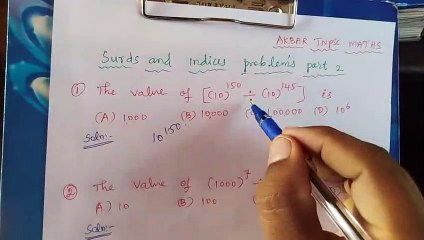 AKBAR TNPSC MATHS
Surds and indices problems part 2
① The value of [(10)^150 ÷ (10)^145] is
(A) 1000 (B) 10,000 100,000 (D) 10^6
Soln:- 10^150
② The value of (1000)^7
A) 10 (B) 100
Soln:-